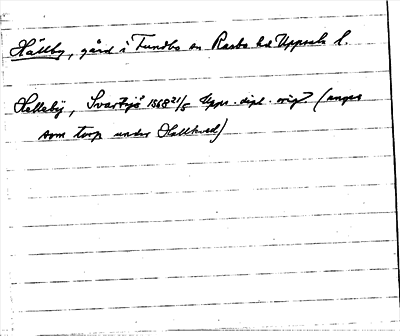 Hällby, gård i Funbo sn Rasbo hd Uppsala l.
Helleby, Svartsjö 1568 21/5 Upps. dipl. orig. (anges
som torp under Hallkved)